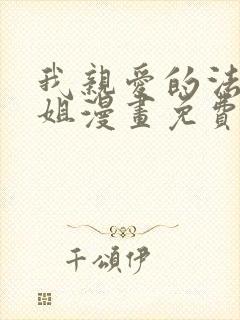 我親愛的法
姐漫畫免費
千頌伊